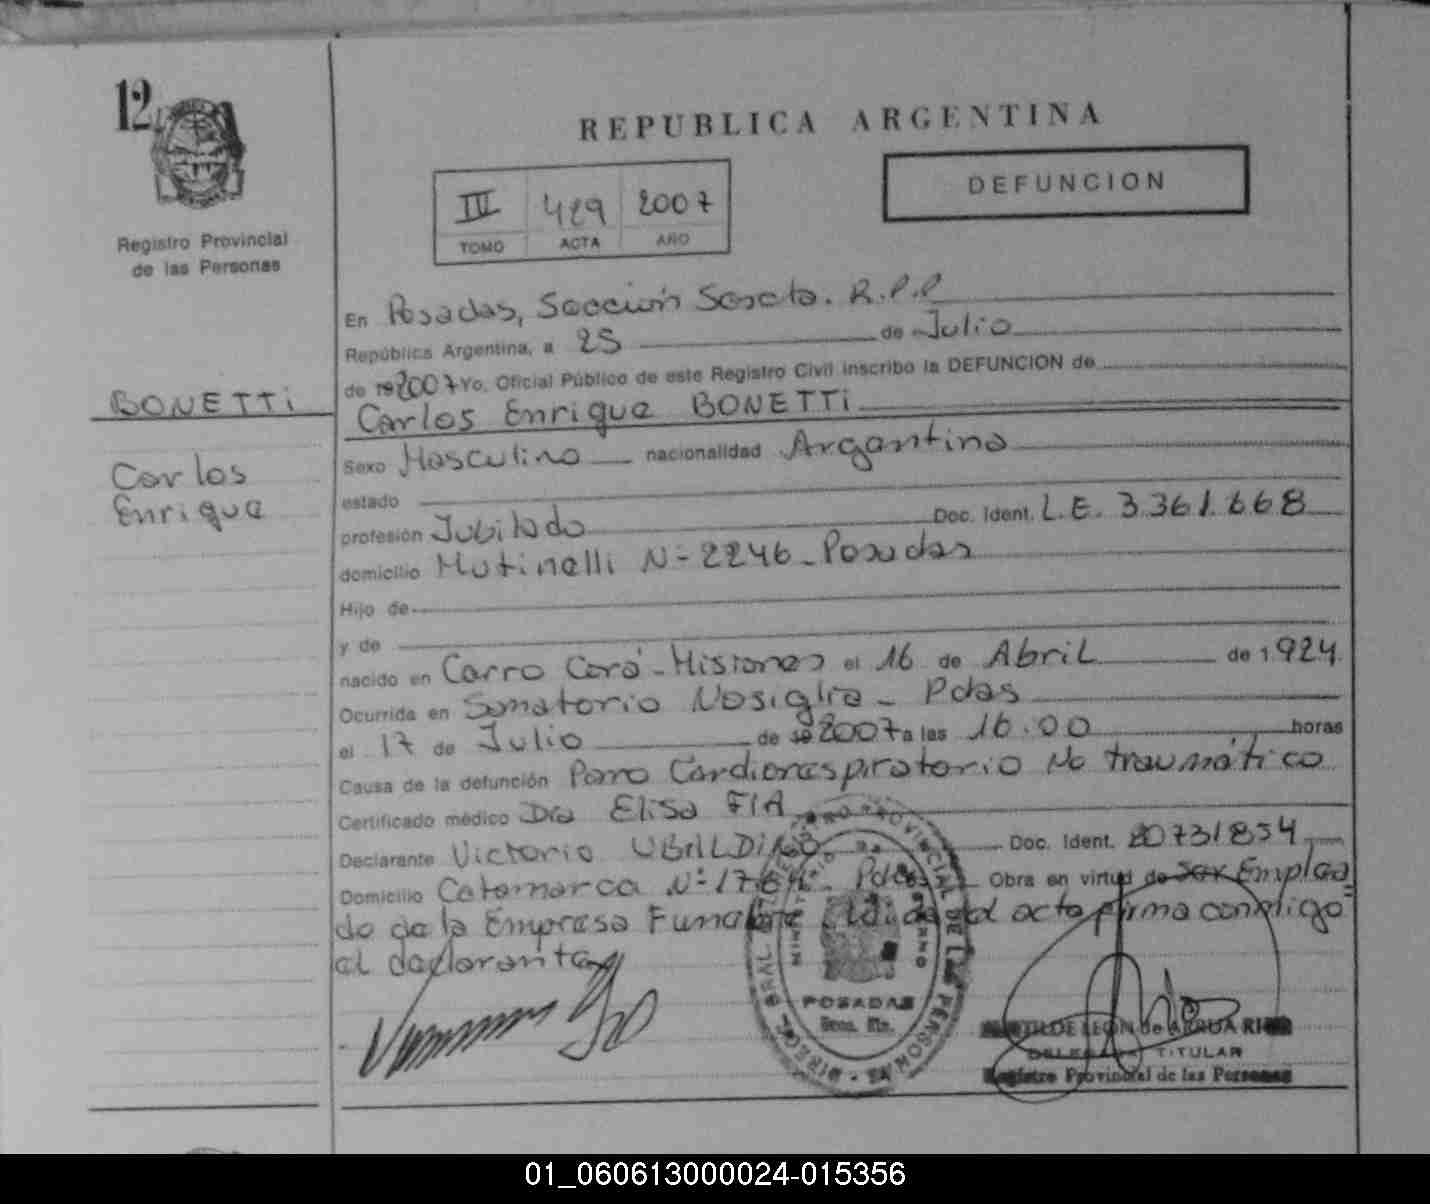 12
Registro Provincial
de las Personas
BONETTi
Carlos
Enrique
REPUBLICA ARGENTINA
DEFUNCION
III 429 2007
TOMO ACTA AÑO
En Posadas, Sección Sexta. R.P.P
República Argentina, a 25 de Julio
de 192007 Yo. Oficial Público de este Registro Civil inscribo la DEFUNCION de
Carlos Enrique BONETTi
Sexo Masculino nacionalidad Argentino
estado
profesión Jubilado Doc. Ident. L.E. 3.361.668
domicilio Mutinelli N-2246-Posadas
Hijo de
y de
nacido en Cerro Corá-Misiones el 16 de Abril de 1.924.
Ocurrida en Sanatorio Nosiglia - Pdas
el 17 de Julio de 192007 a las 16.00 horas
Causa de la defunción Paro Cardiorespiratorio No traumático
Certificado médico Dra Elisa FIA
Declarante Victorio UBALDINO Doc. Ident. 20731854
Domicilio Catamarca N-° Pdas Obra en virtud de ser Emplea=
do de la Empresa Funebre el acta firma conmigo
el declarante
DIREC. GRAL. REGISTRO PROVINCIAL DE LAS PERSONAS
MINISTERIO DE GOBIERNO
POSADAS
MATILDE LEON de ARRUA
DELEGADA TITULAR
Registro Provincial de las Personas
01_060613000024-015356